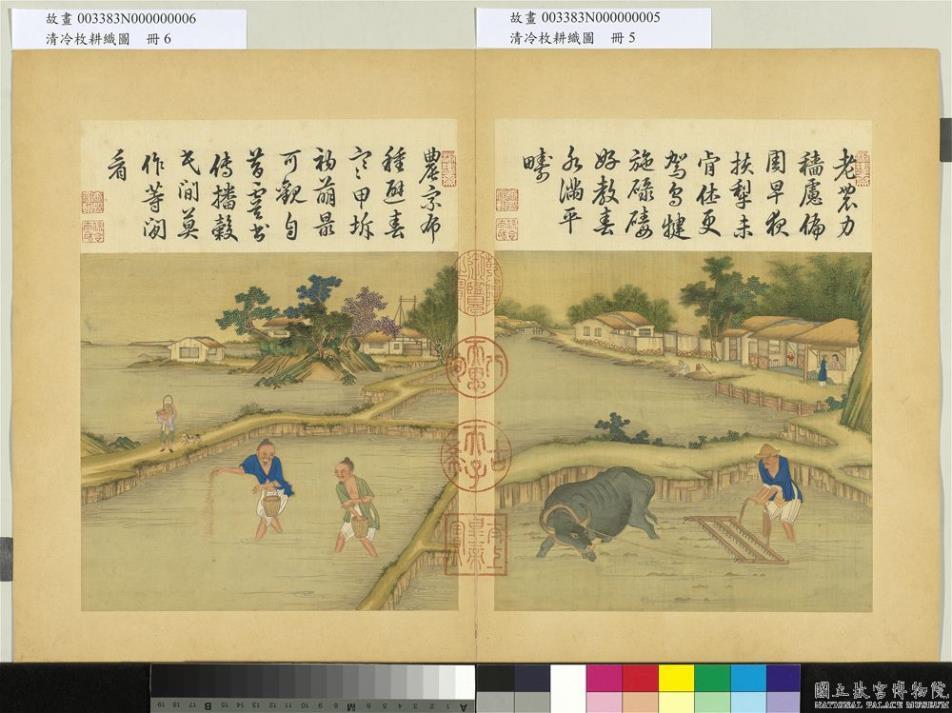 故畫 003383N000000006
清冷枚耕織圖 冊 6
故畫 003383N000000005
清冷枚耕織圖 冊 5
老農力
穡慮偏
周早夜
扶犁未
肯休更
駕烏犍
施碌碡
好教春
水滿平
疇
農家布
種避春
寒甲坼
初萌最
可觀自
昔虞書
傳播穀
民間莫
作等閒
看
古稀天子
B
M
A
國立故宮博物院
NATIONAL PALACE MUSEUM